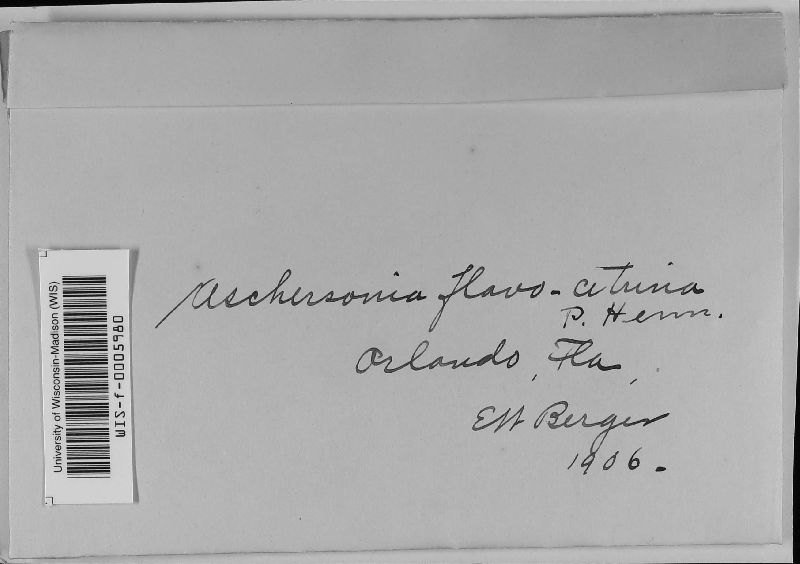 Aschersonia flavo-citrina
P. Henn.
Orlando, Fla.
EW Berger
1906.
University of Wisconsin-Madison (WIS)
WIS-f-0005980